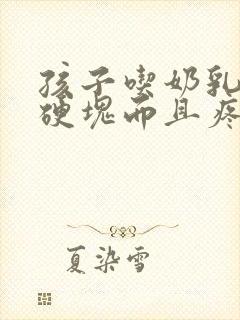 孩子喫奶乳
硬塊而且疼
夏染雪